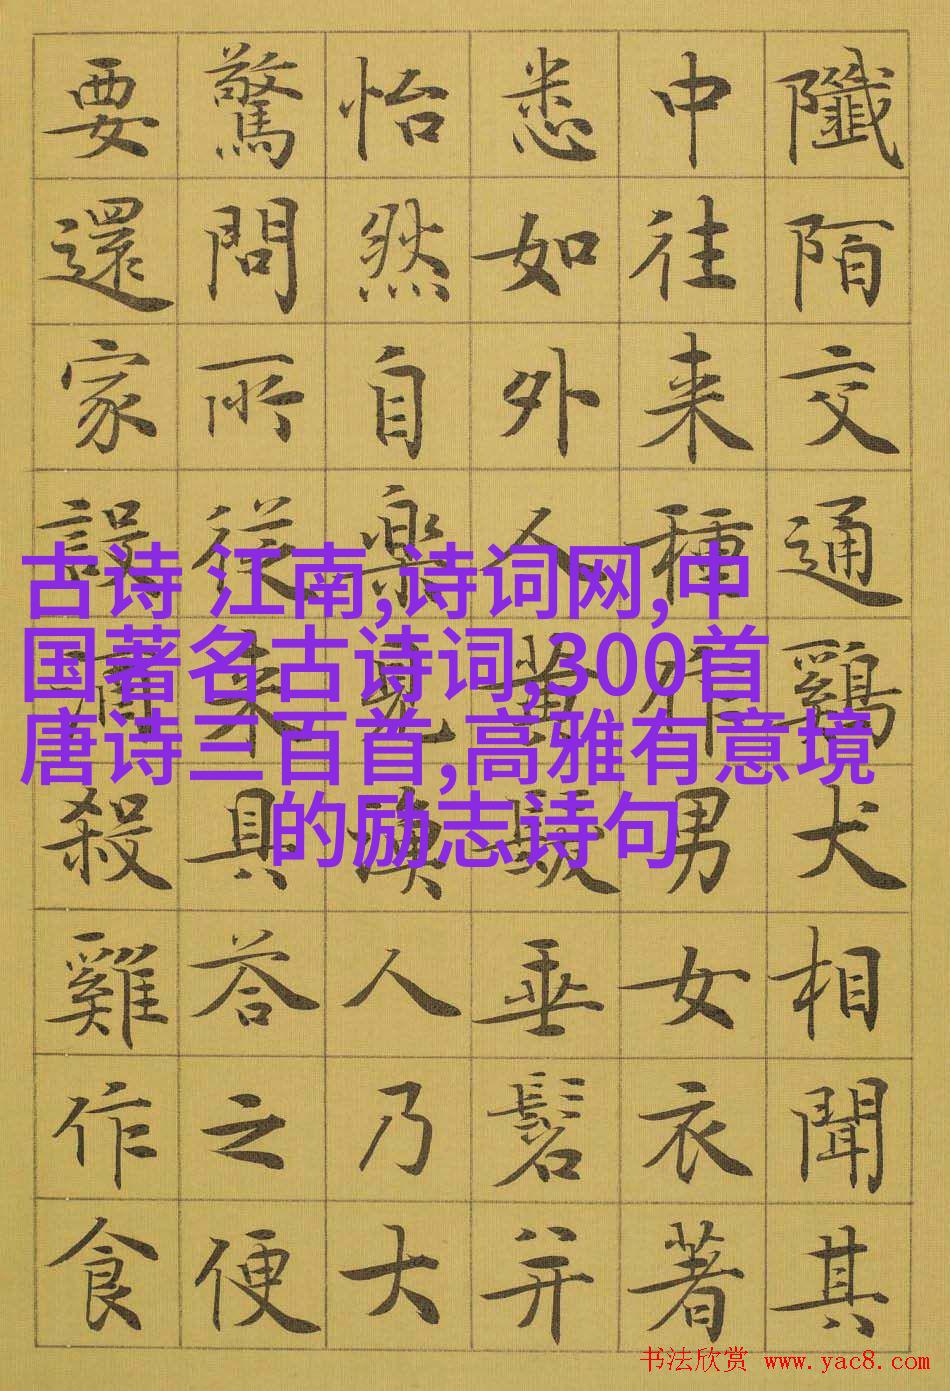 陌交通鷄犬相聞其
中往来種作男女衣著
悉如外人黄髮垂髫并
怡然自樂見漁人乃大
驚問所從来具荅之便
要還家設酒殺雞作食
古诗 江南,诗词网,中
国著名古诗词,300首
唐诗三百首,高雅有意境
的励志诗句
书法欣赏 www.yac8.com